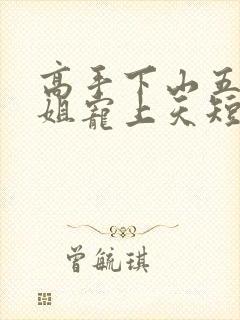 高手下山五
姐宠上天短
曾毓琪